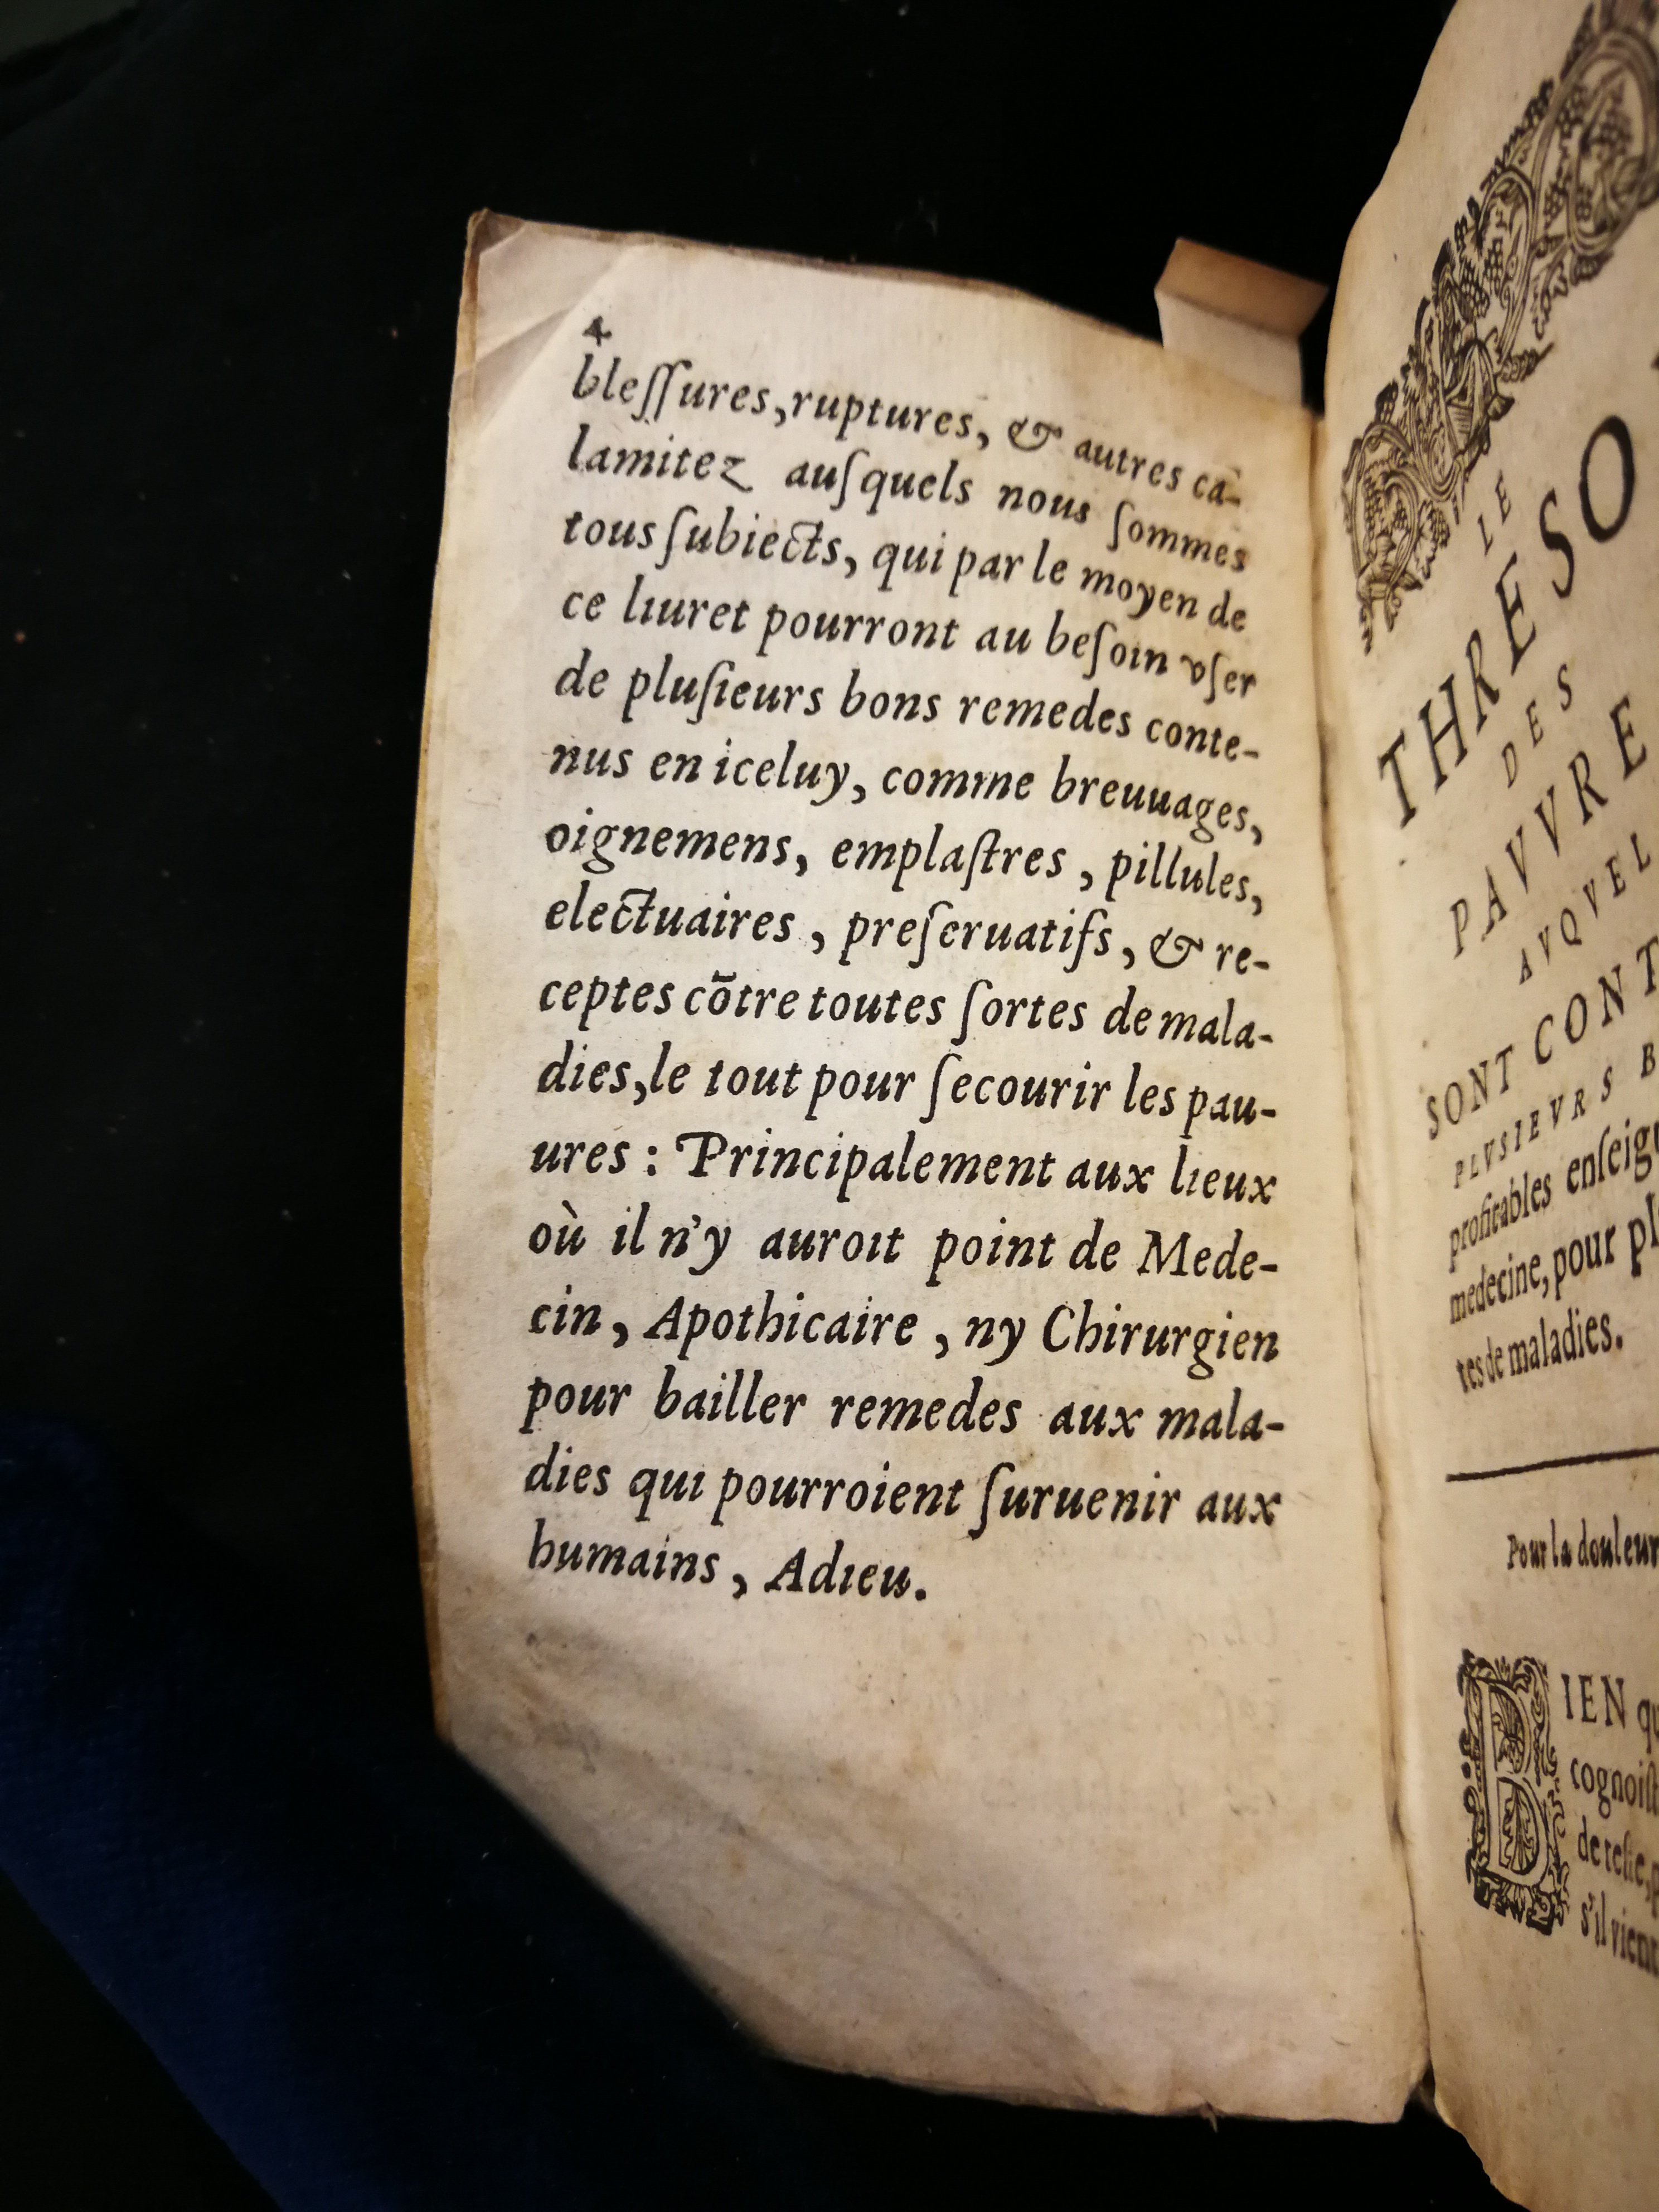 4
bleſſures, ruptures, & autres ca-
lamitez auſquels nous ſommes
tous ſubiects, qui par le moyen de
ce liuret pourront au beſoin vſer
de pluſieurs bons remedes conte-
nus en iceluy, comme breuuages,
oignemens, emplaſtres, pillules,
electuaires, preſeruatifs, & re-
ceptes cõtre toutes ſortes de mala-
dies, le tout pour ſecourir les pau-
ures : Principalement aux lieux
où il n'y auroit point de Mede-
cin, Apothicaire, ny Chirurgien
pour bailler remedes aux mala-
dies qui pourroient ſuruenir aux
humains, Adieu.
LE
THRESO
DES
PAVVRE
AVQVEL
SONT CONT
PLVSIEVRS B
profitables enſeig
medecine, pour pl
tes de maladies.
Pour la douleur
BIEN qu
cognoiſt
de teſte,
s'il vient